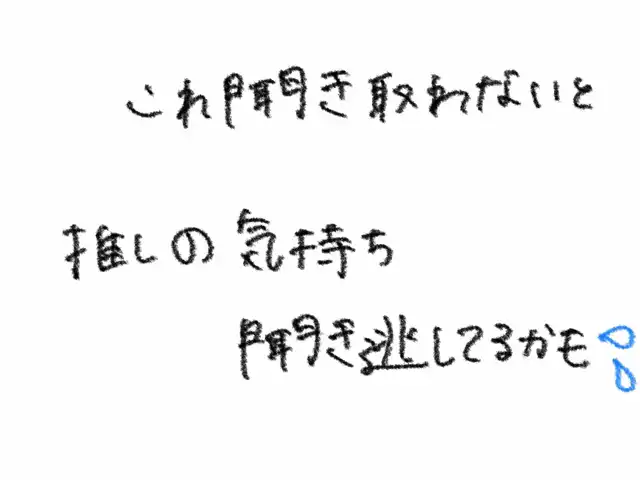 これ聞き取れないと
推しの気持ち
聞き逃してるかも